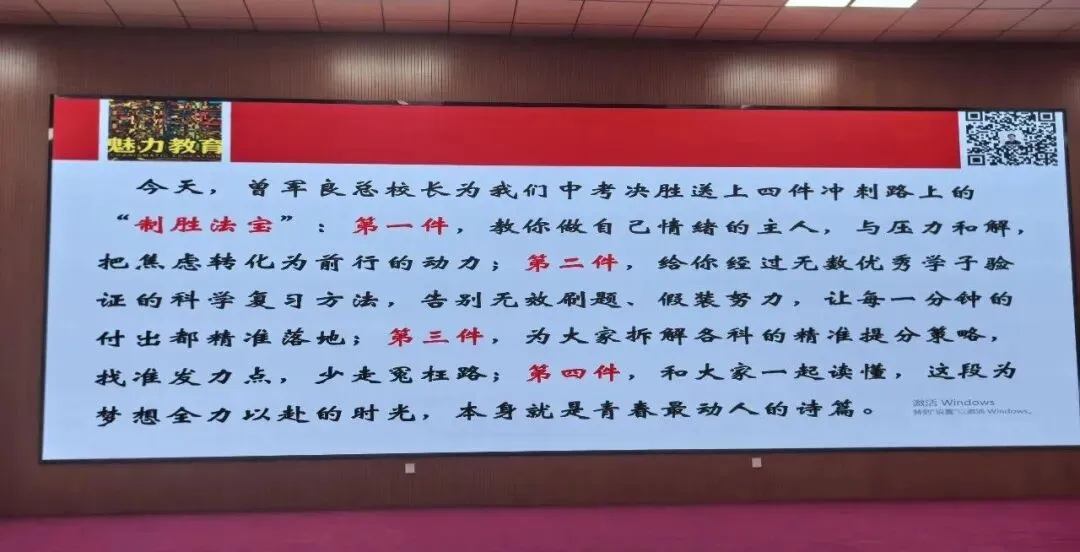 魅力教育
今天，曾军良总校长为我们中考决胜送上四件冲刺路上的
“制胜法宝”：第一件，教你做自己情绪的主人，与压力和解，
把焦虑转化为前行的动力；第二件，给你经过无数优秀学子验
证的科学复习方法，告别无效刷题、假装努力，让每一分钟的
付出都精准落地；第三件，为大家拆解各科的精准提分策略，
找准发力点，少走冤枉路；第四件，和大家一起读懂，这段为
梦想全力以赴的时光，本身就是青春最动人的诗篇。
激活 Windows
转到“设置”以激活 Windows。